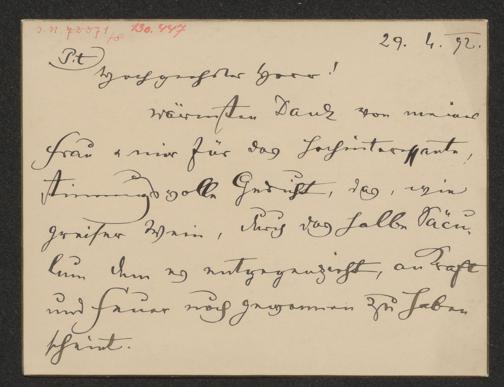 I.N. 70071/18 130.447
29. 4. 92.
P.t
Hochgeehrter Herr!
wärmsten Dank von meiner
Frau & mir für das hochinteressante,
stimmungsvolle Gedicht, das, wie
greiser Wein, durch das halbe Säcu-
lum dem es entgegenzieht, an Kraft
und Feuer noch gewonnen zu haben
scheint.